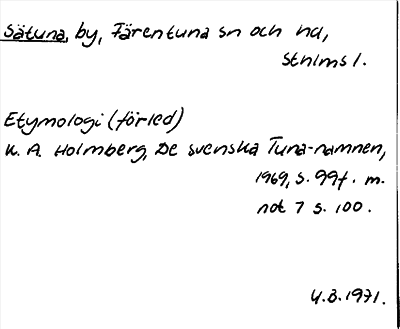 Sätuna, by, Färentuna sn och hd,
Sthlms l.
Etymologi (förled)
K. A. Holmberg, De svenska Tuna-namnen,
1969, s. 99f. m.
not 7 s. 100.
U.B. 1971.